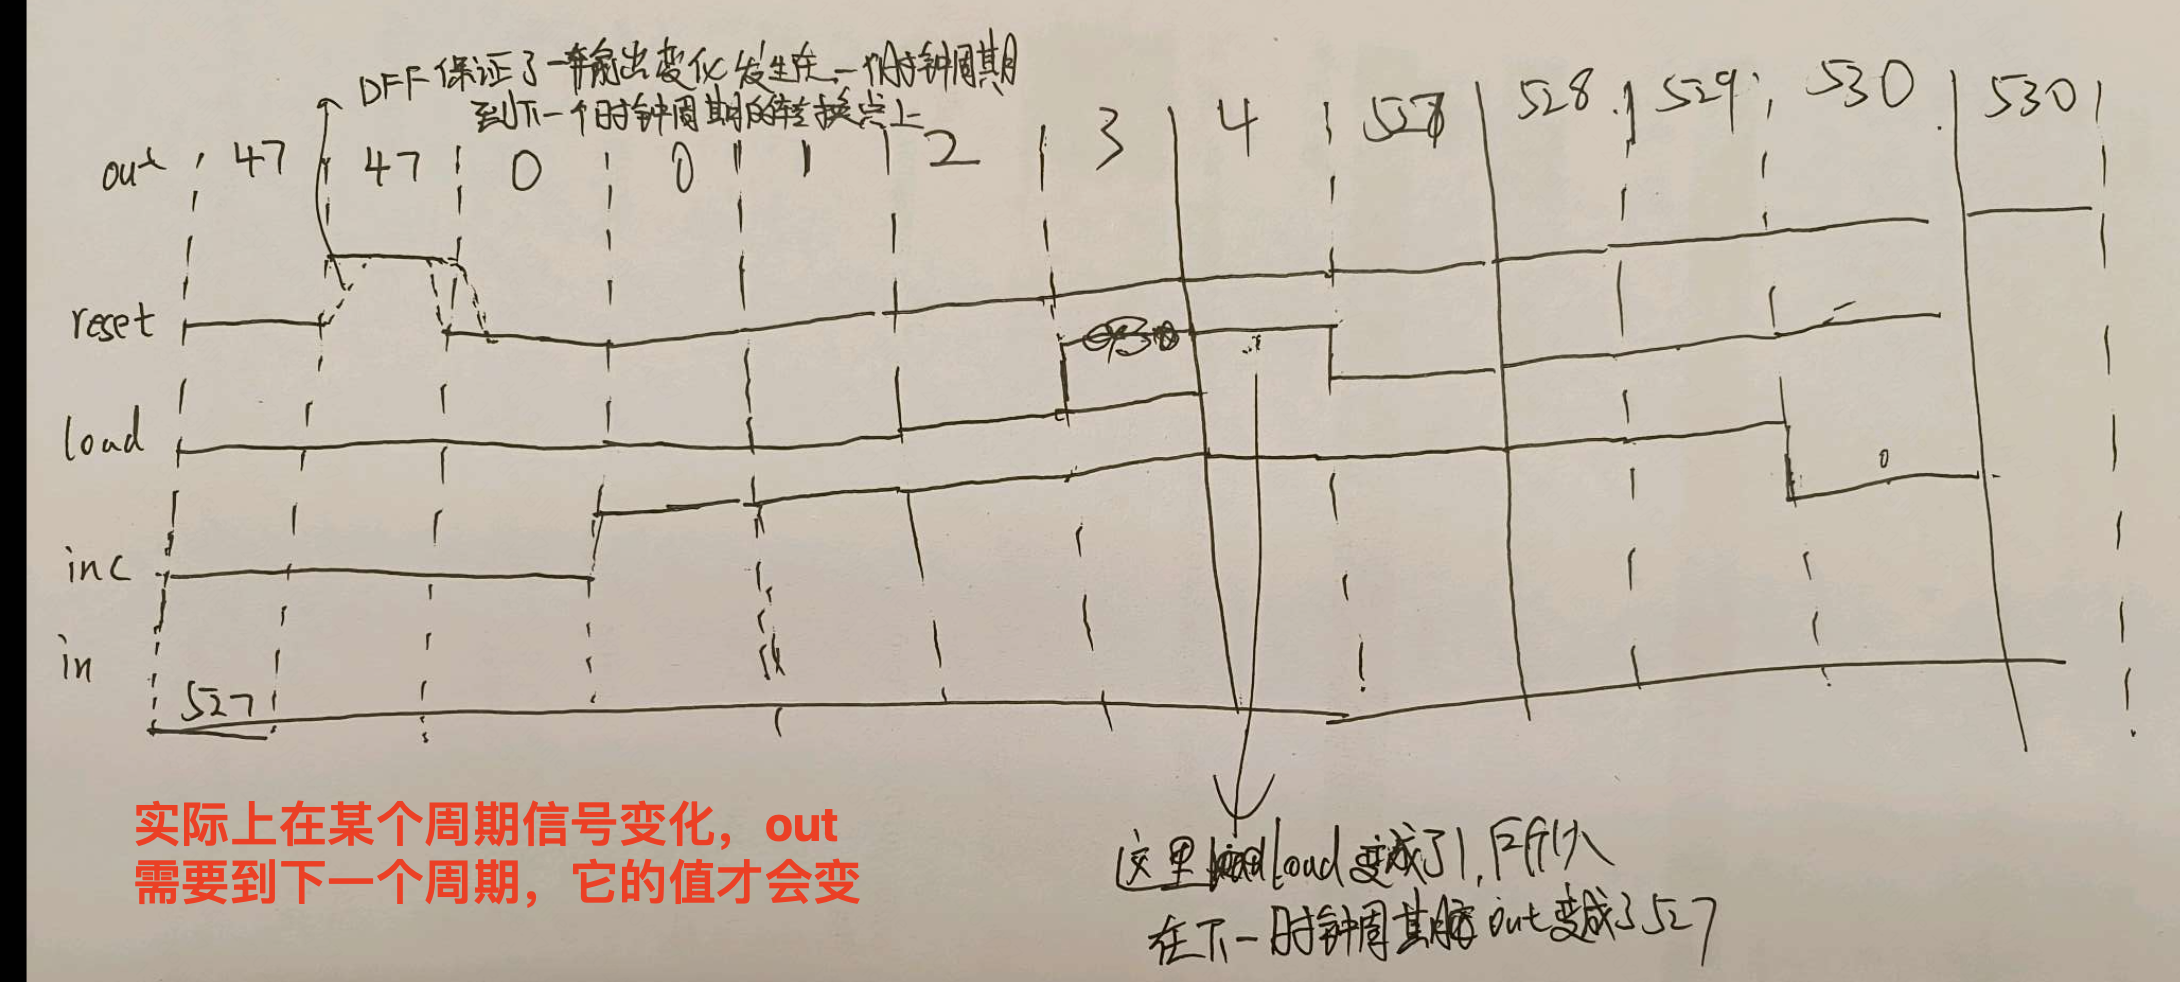 DFF保证了一个输出变化发生在一个时钟周期
到下一个时钟周期的转换点上
out 47 47 0 0 1 2 3 4 527 528 529 530 530
reset
load
inc
0
in
527
实际上在某个周期信号变化，out
需要到下一个周期，它的值才会变
这里load变成了1，所以
在下一时钟周期out变成了527